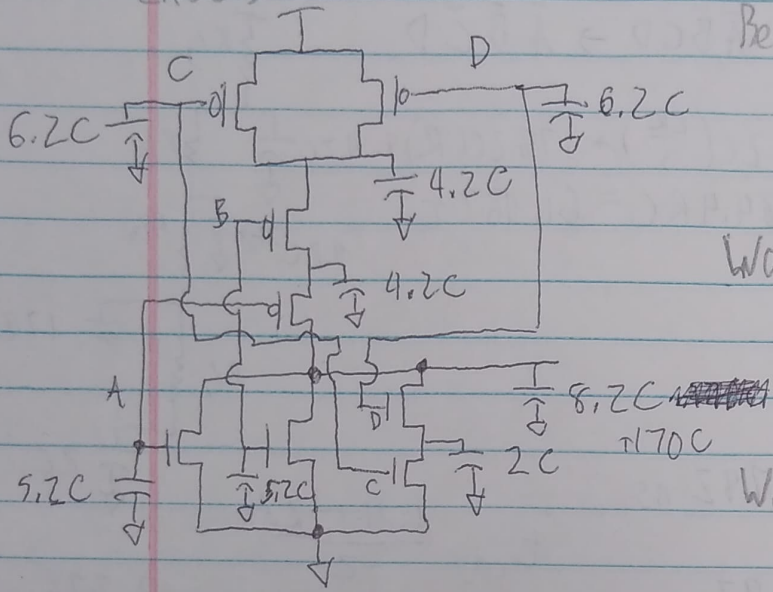 Be
C
D
6.2C
6.2C
4.2C
B
Wo
4.2C
A
8.2C
+170C
D
2C
5.2C
5.2C
C
W